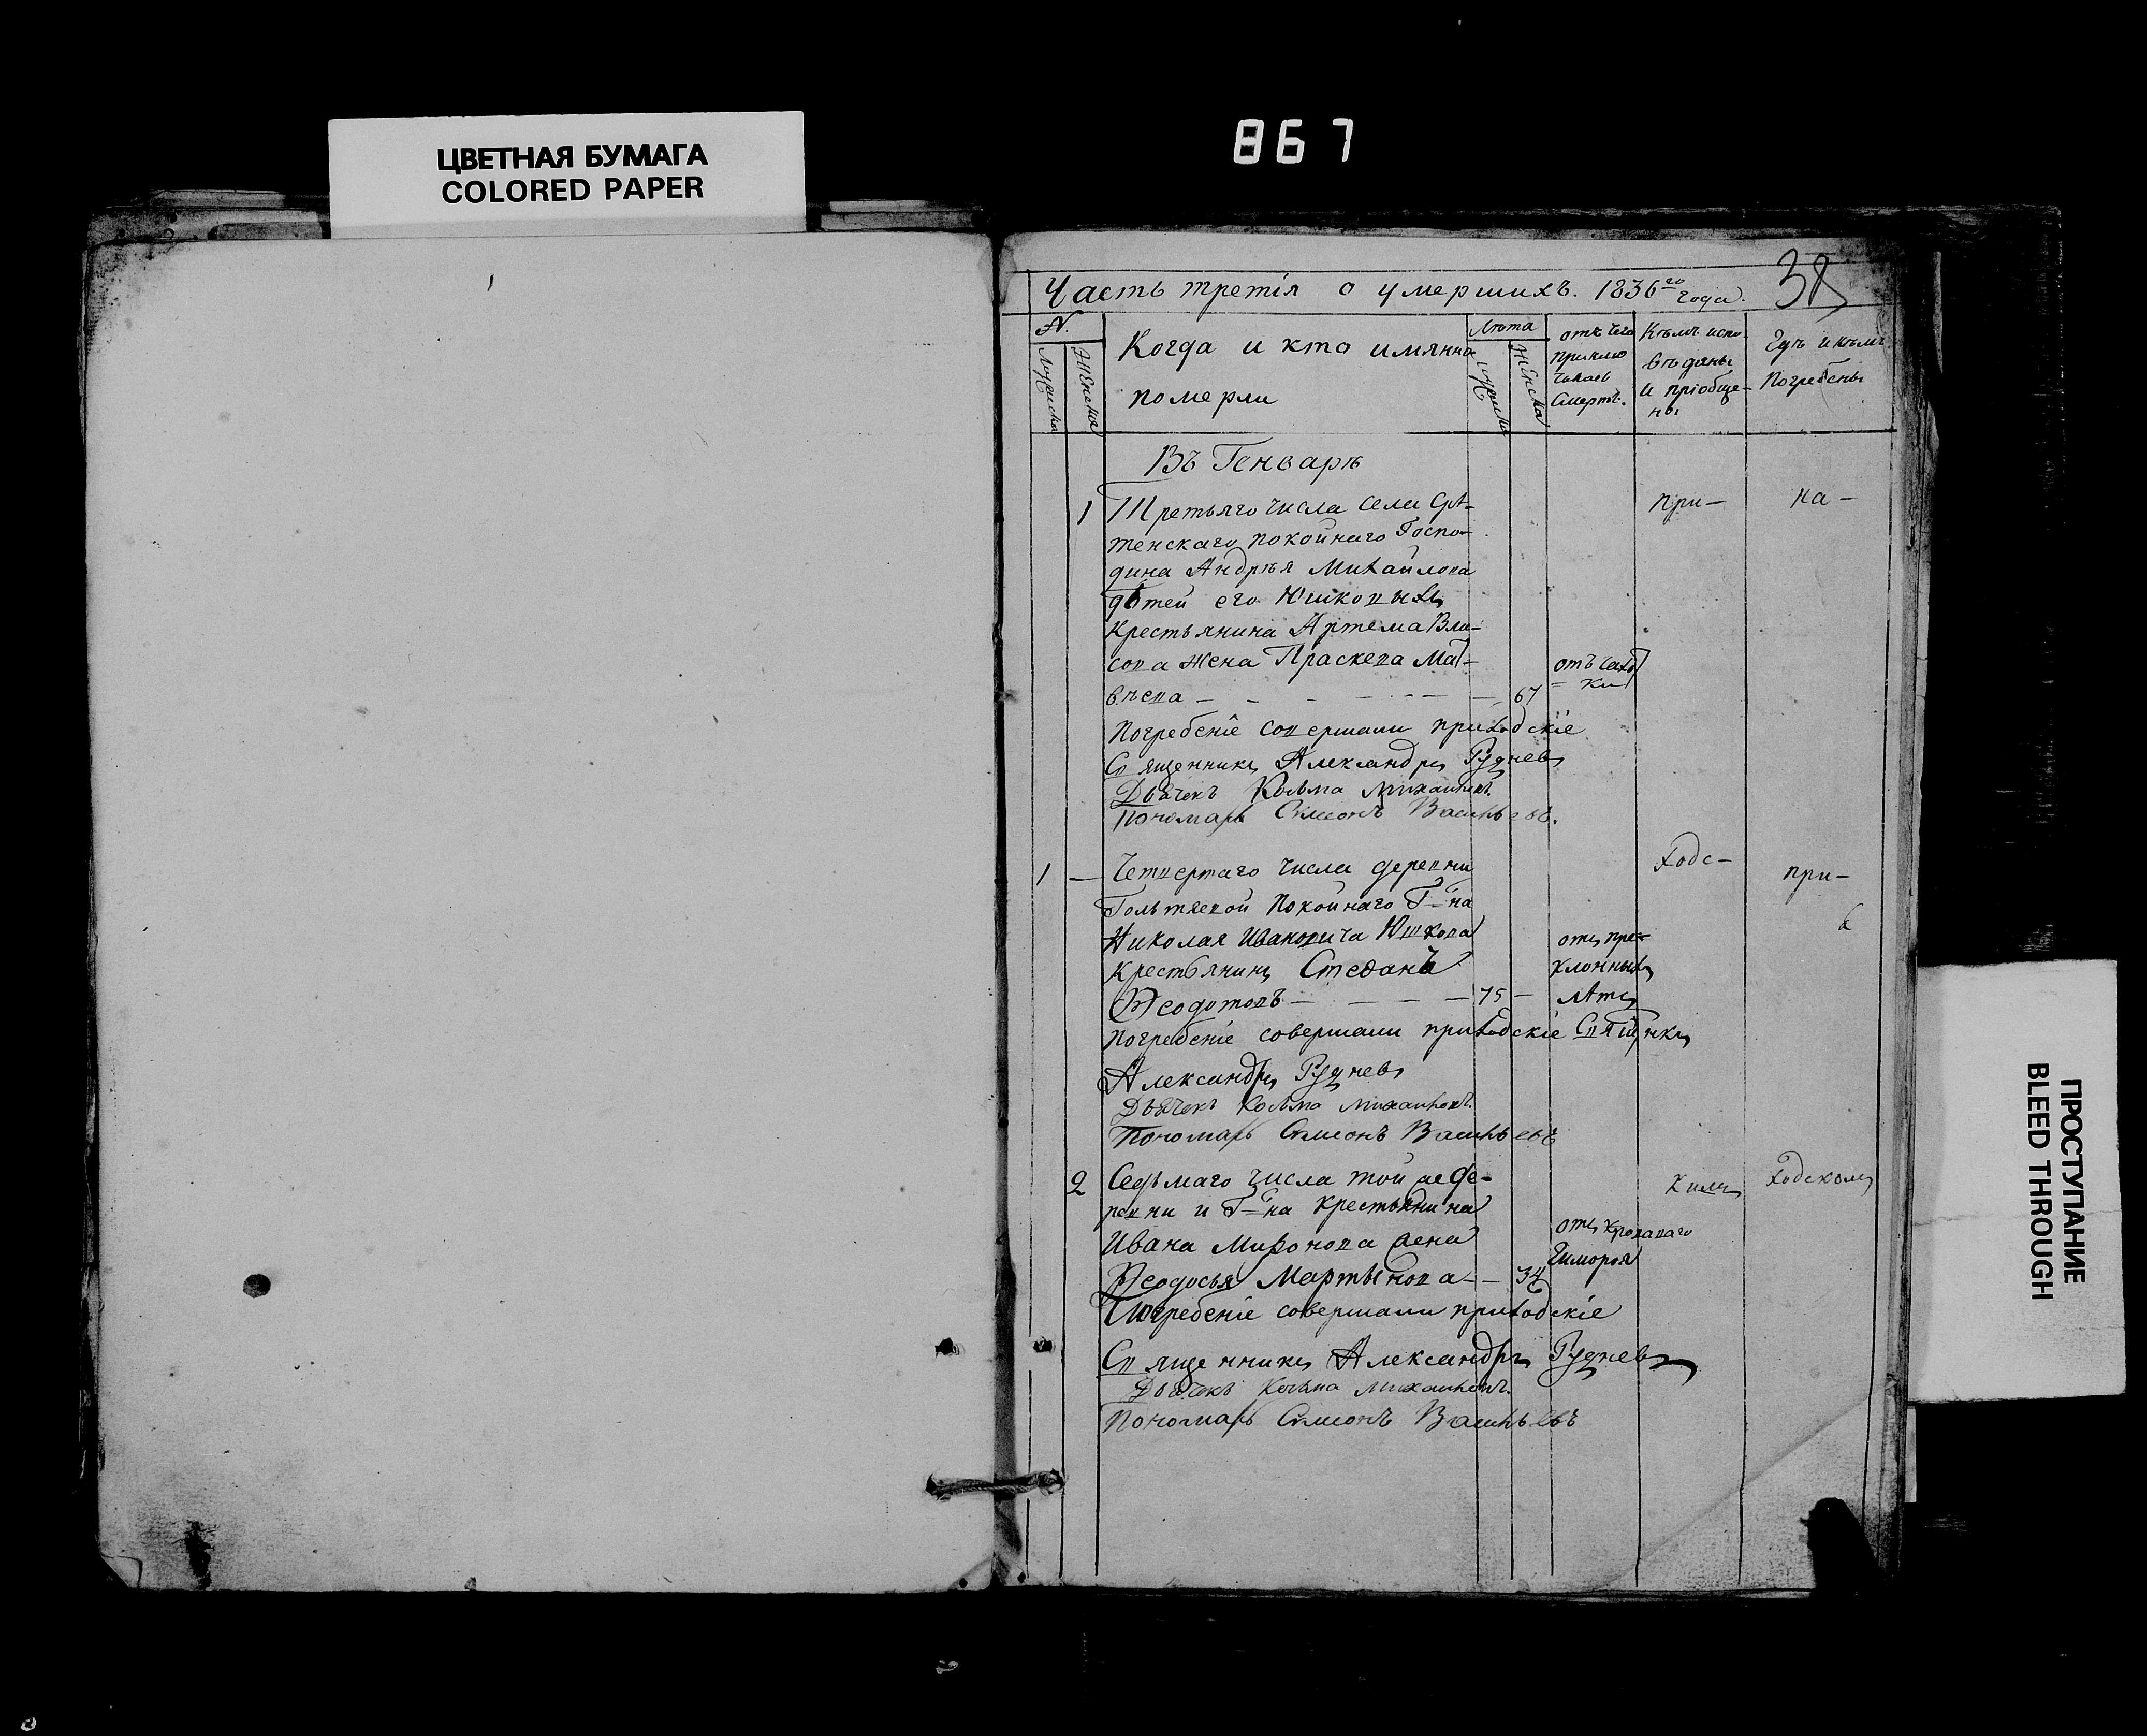 ЦВЕТНАЯ БУМАГА
COLORED PAPER
867
38
Часть третія о умершихъ. 1836го года.
№.
Мужска
Женска
Когда и кто имянно
померли
Лѣта
Мужска
Женска
отъ чего
приклю
чилась
Смерть.
Кѣмъ испо-
вѣданы
и пріобще-
ны
Гдѣ и кѣмъ
Погребены
Въ Генварѣ
1 Третьяго числа села Срѣ-
тенскаго покойнаго Госпо-
дина Андрѣя Михайлова
дѣтей его Юшковыхъ
Крестьянина Артема Вла-
сова жена Праскева Мат-
вѣева — — — — 67
отъ чахот
ки
при-
на-
Погребеніе совершали приходскіе
Священникъ Александръ Рудневъ
Дьячекъ Козьма Михайловъ.
Пономарь Симеонъ Васильевъ.
1 — Четвертаго числа деревни
Гольтяевой покойнаго Г-на
Николая Ивановича Юшкова
Крестьянинъ Стефанъ
Ѳеодотовъ — — — — 75 —
отъ пре-
клонныхъ
лѣтъ
ходс-
при-
Погребеніе совершали приходскіе Свящнкъ
Александръ Рудневъ
Дьячекъ Козьма Михайловъ.
Пономарь Симеонъ Васильевъ
2 Седьмаго числа той же де-
ревни и Г-на Крестьянина
Ивана Миронова жена
Ѳеодосья Мартынова — — 34
отъ кроваваго
Гимороя
кимъ
ходскомъ
Погребеніе совершали приходскіе
Священникъ Александръ Рудневъ
Дьячекъ Козьма Михайловъ.
Пономарь Симеонъ Васильевъ
ПРОСТУПАНИЕ
BLEED THROUGH